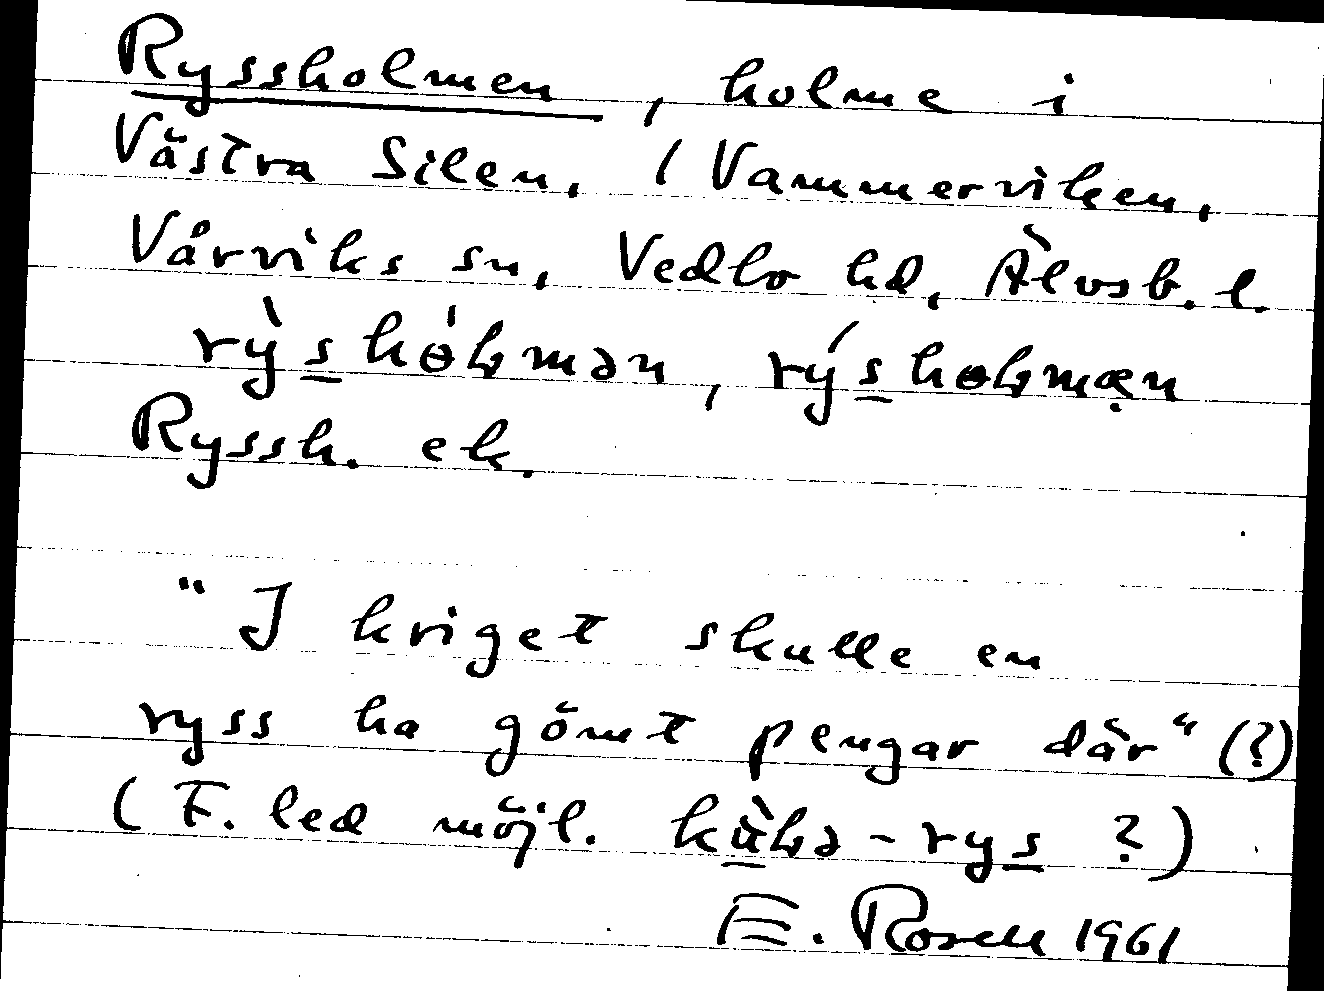 Ryssholmen, holme i
Västra Silen, (Vammerviken,
Vårviks sn, Vedbo hd, Älvsb. l.
rỳs hɵ́ɫmən, rýs hɵɫmæn
Ryssh. ek.
"I kriget skulle en
ryss ha gömt pengar där" (?)
(F. led möjl. -rys ?)
E. Rosell 1961